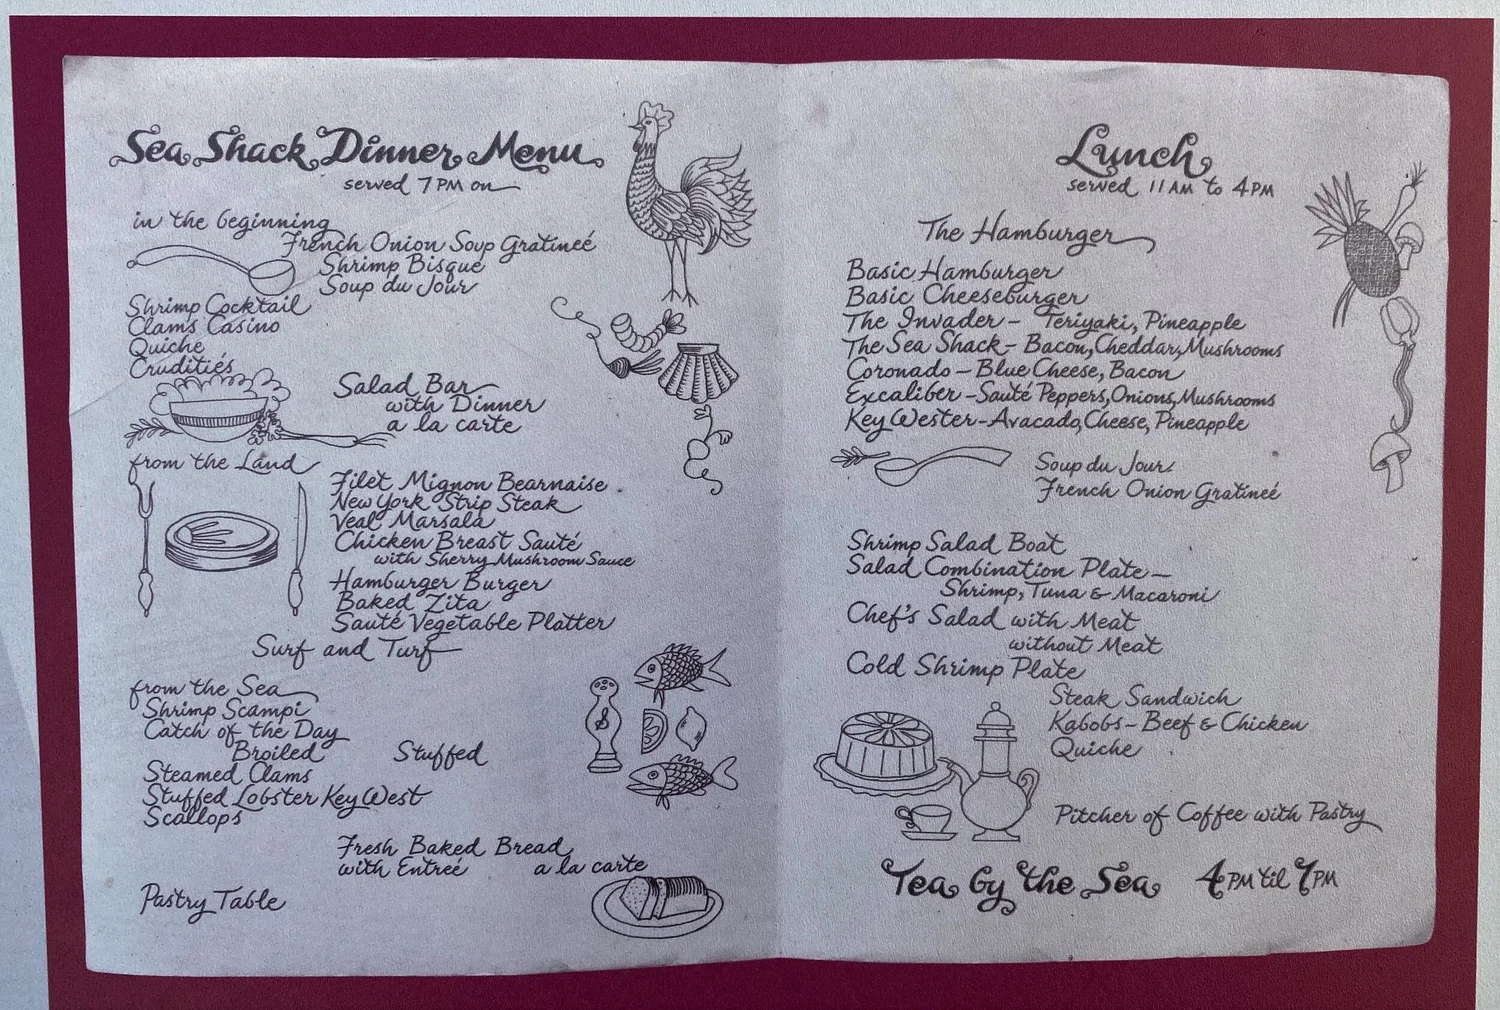 Sea Shack Dinner Menu
served 7 PM on
in the beginning
French Onion Soup Gratineé
Shrimp Bisque
Soup du Jour
Shrimp Cocktail
Clams Casino
Quiche
Cruditiés
Salad Bar
with Dinner
a la carte
from the Land
Filet Mignon Bearnaise
New York Strip Steak
Veal Marsala
Chicken Breast Sauté
with Sherry Mushroom Sauce
Hamburger Burger
Baked Zita
Sauté Vegetable Platter
Surf and Turf
from the Sea
Shrimp Scampi
Catch of the Day
Broiled Stuffed
Steamed Clams
Stuffed Lobster Key West
Scallops
Fresh Baked Bread
with Entreé a la carte
Pastry Table
Lunch
served 11 AM to 4 PM
The Hamburger
Basic Hamburger
Basic Cheeseburger
The Invader - Teriyaki, Pineapple
The Sea Shack - Bacon, Cheddar, Mushrooms
Coronado - Blue Cheese, Bacon
Excaliber - Sauté Peppers, Onions, Mushrooms
Key Wester - Avacado, Cheese, Pineapple
Soup du Jour
French Onion Gratineé
Shrimp Salad Boat
Salad Combination Plate -
Shrimp, Tuna & Macaroni
Chef's Salad with Meat
without Meat
Cold Shrimp Plate
Steak Sandwich
Kabobs - Beef & Chicken
Quiche
Pitcher of Coffee with Pastry
Tea by the Sea 4 PM til 7 PM